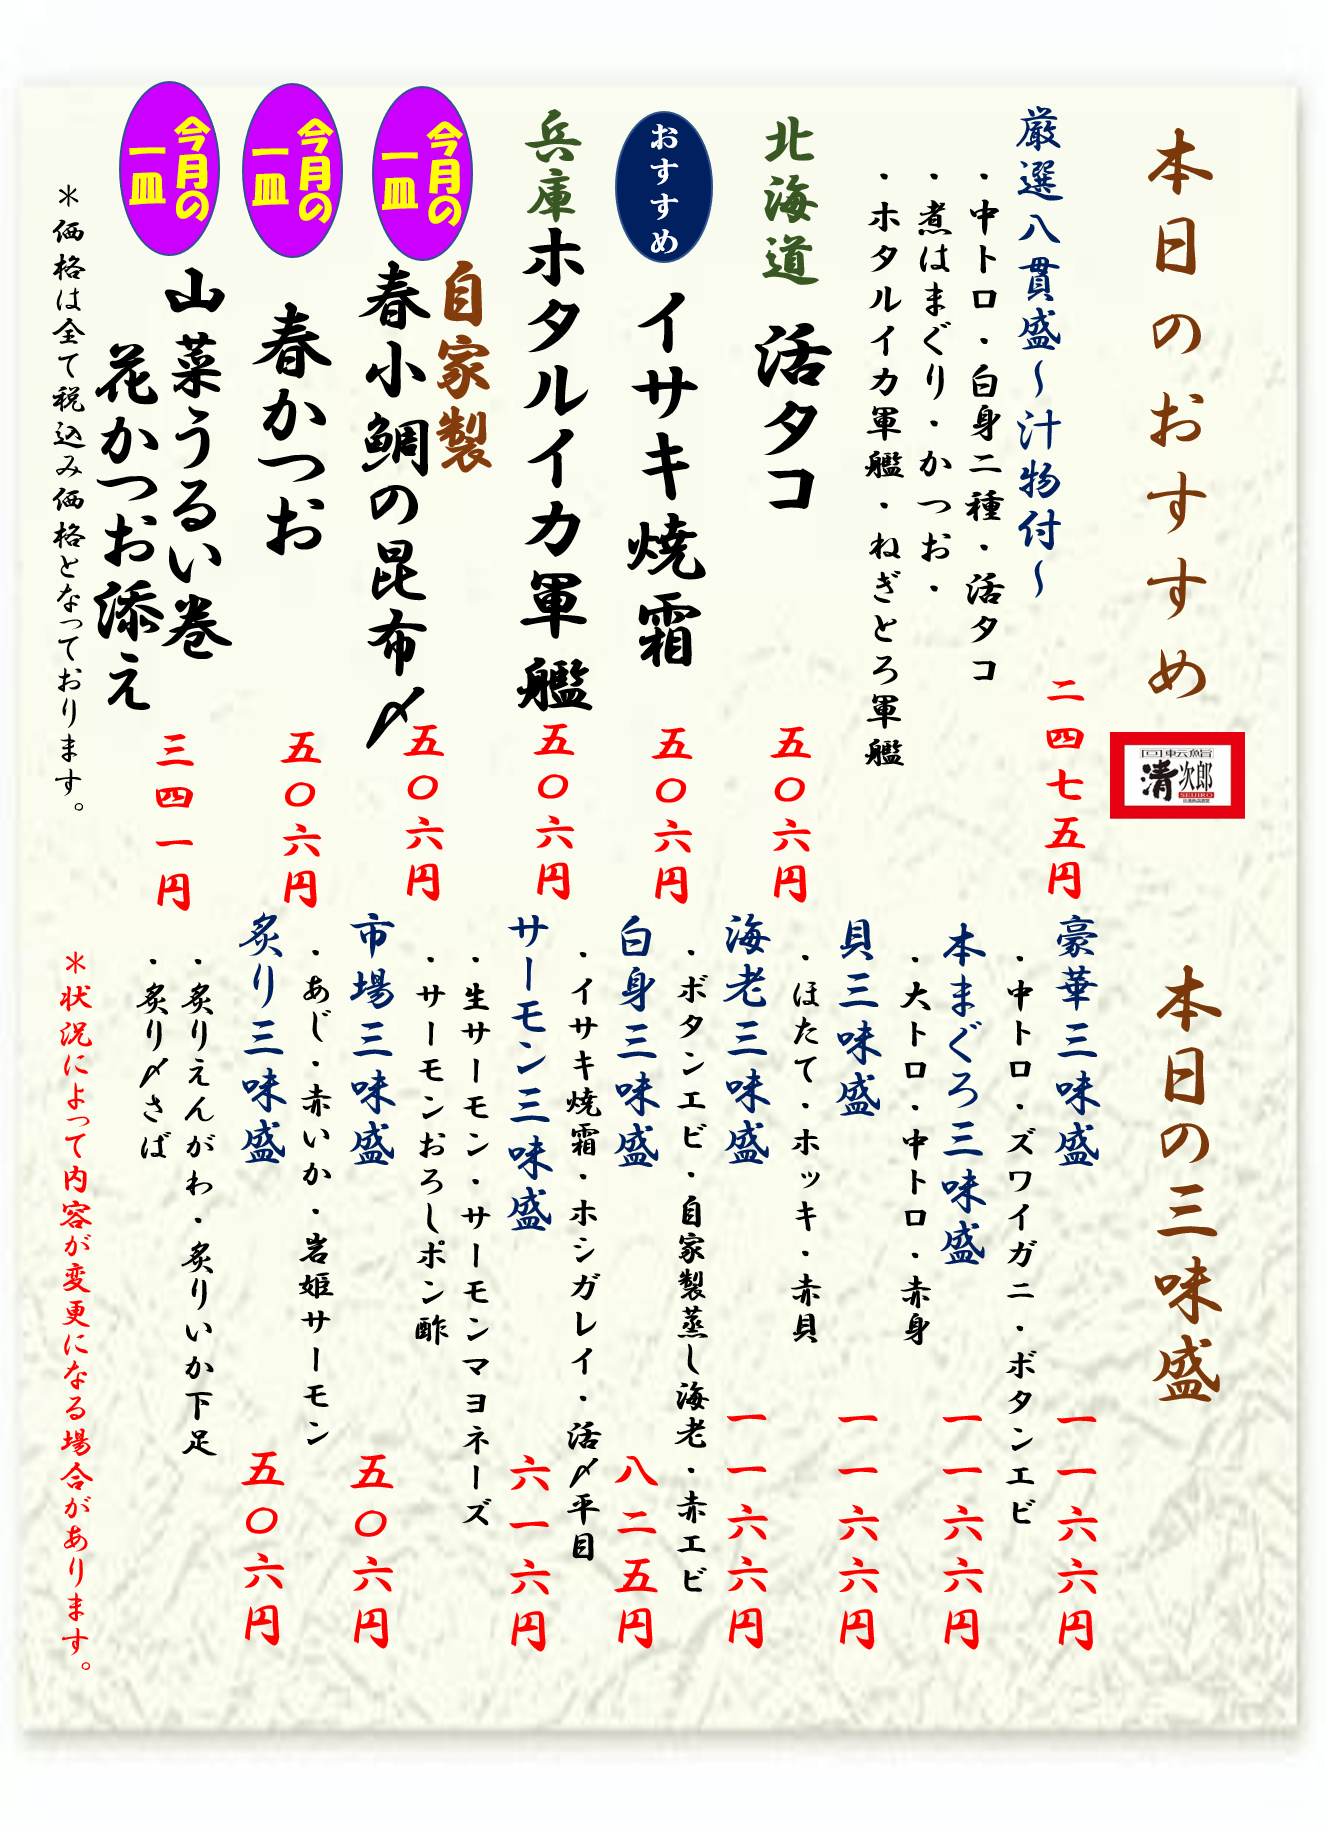 本日のおすすめ
回転鮨
清次郎
SEIJIRO
厳選八貫盛～汁物付～
二四七五円
・中トロ・白身二種・活タコ
・煮はまぐり・かつお・
・ホタルイカ軍艦・ねぎとろ軍艦
北海道 活タコ
五〇六円
おすすめ
イサキ焼霜
五〇六円
兵庫ホタルイカ軍艦
五〇六円
今月の
一皿
自家製
春小鯛の昆布〆
五〇六円
今月の
一皿
春かつお
五〇六円
今月の
一皿
山菜うるい巻
花かつお添え
三四一円
＊価格は全て税込み価格となっております。
本日の三味盛
豪華三味盛
一一六六円
・中トロ・ズワイガニ・ボタンエビ
本まぐろ三味盛
一一六六円
・大トロ・中トロ・赤身
貝三味盛
一一六六円
・ほたて・ホッキ・赤貝
海老三味盛
一一六六円
・ボタンエビ・自家製蒸し海老・赤エビ
白身三味盛
八二五円
・イサキ焼霜・ホシガレイ・活〆平目
サーモン三味盛
六一六円
・生サーモン・サーモンマヨネーズ
・サーモンおろしポン酢
市場三味盛
五〇六円
・あじ・赤いか・岩姫サーモン
炙り三味盛
五〇六円
・炙りえんがわ・炙りいか下足
・炙り〆さば
＊状況によって内容が変更になる場合があります。